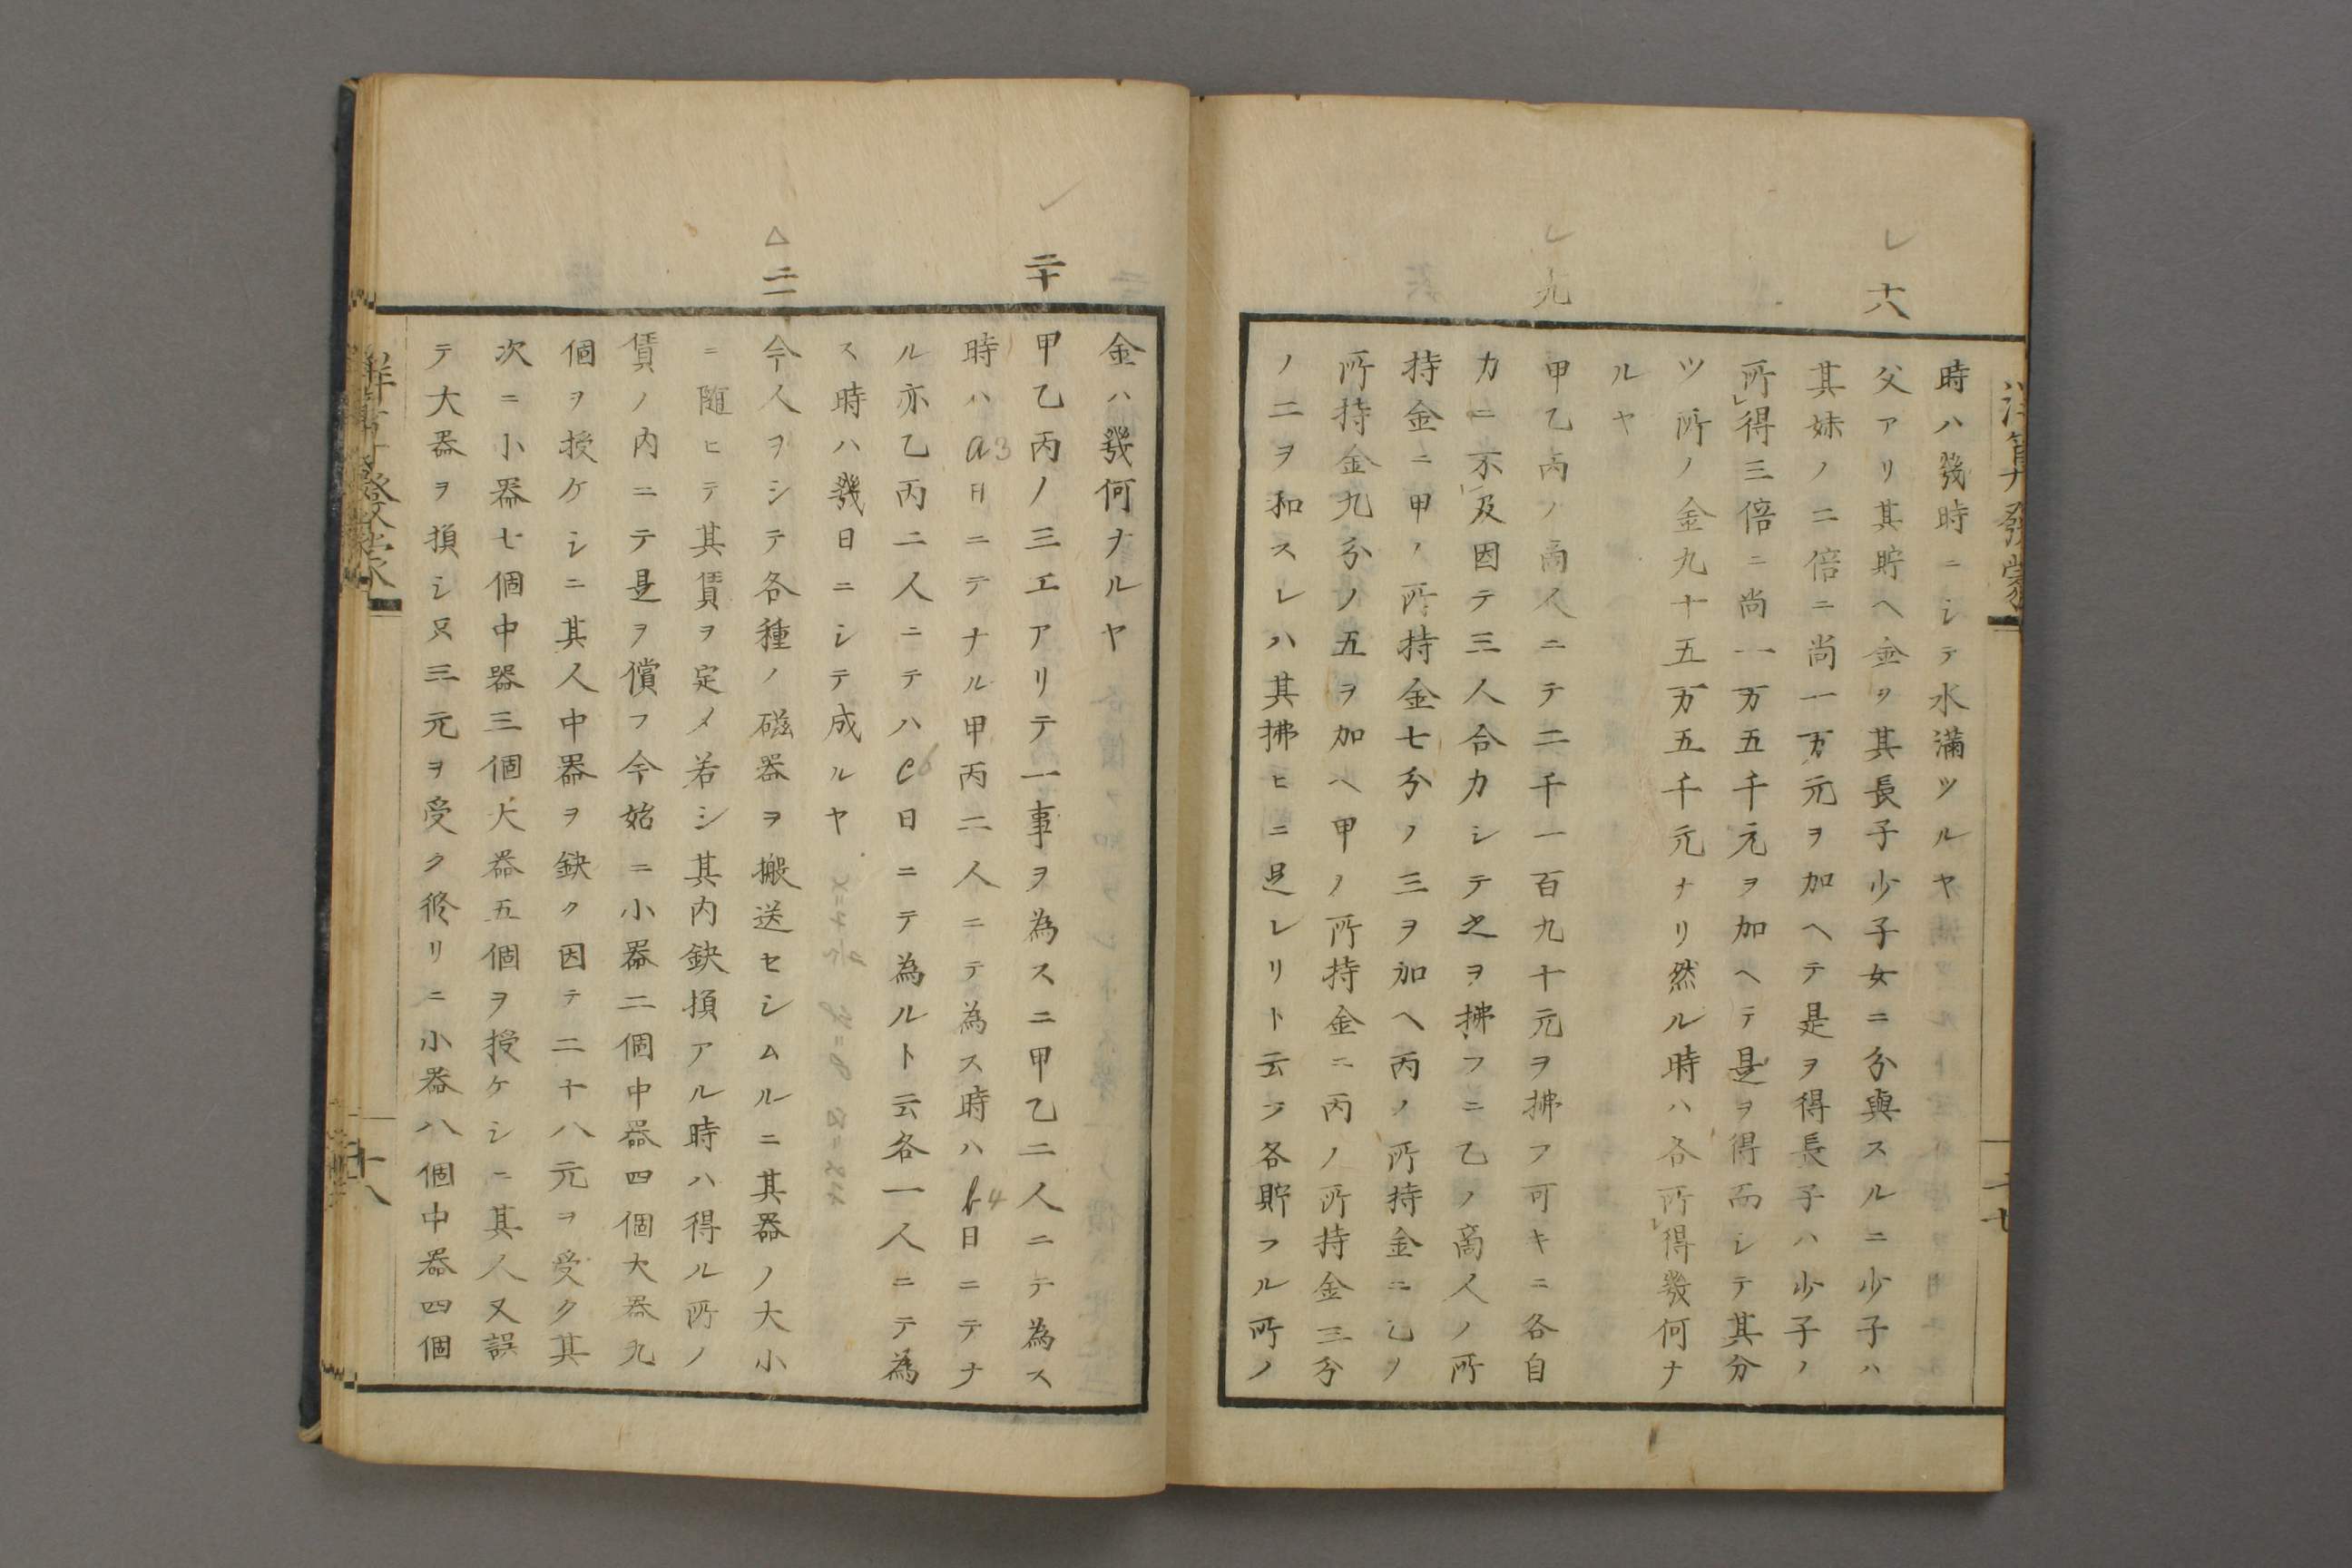 十八
時ハ幾時ニシテ水滿ツルヤ
父アリ其貯ヘ金ヲ其長子少子女ニ分與スルニ少子ハ
其妹ノ二倍ニ尚一万元ヲ加ヘテ是ヲ得長子ハ少子ノ
所得三倍ニ尚一万五千元ヲ加ヘテ是ヲ得而シテ其分
ツ所ノ金九十五万五千元ナリ然ル時ハ各所得幾何ナ
ルヤ
九
甲乙丙ノ商人ニテ二千一百九十元ヲ拂フ可キニ各自
力ニ不及因テ三人合力シテ之ヲ拂フニ乙ノ商人ノ所
持金ニ甲ノ所持金七分ノ三ヲ加ヘ丙ノ所持金ニ乙ノ
所持金九分ノ五ヲ加ヘ甲ノ所持金ニ丙ノ所持金三分
ノ二ヲ和スレハ其拂ヒニ足レリト云フ各貯フル所ノ
金ハ幾何ナルヤ
二十
甲乙丙ノ三工アリテ一事ヲ為スニ甲乙二人ニテ為ス
時ハa3日ニテナル甲丙二人ニテ為ス時ハb4日ニテナ
ル亦乙丙二人ニテハc6日ニテ為ルト云各一人ニテ為
ス時ハ幾日ニシテ成ルヤ
二一
今人ヲシテ各種ノ磁器ヲ搬送セシムルニ其器ノ大小
ニ随ヒテ其賃ヲ定メ若シ其内鈌損アル時ハ得ル所ノ
賃ノ内ニテ是ヲ償フ今始ニ小器二個中器四個大器九
個ヲ授ケシニ其人中器ヲ鈌ク因テ二十八元ヲ受ク其
次ニ小器七個中器三個大器五個ヲ授ケシニ其人又誤
テ大器ヲ損シ只三元ヲ受ク終リニ小器八個中器四個
十八